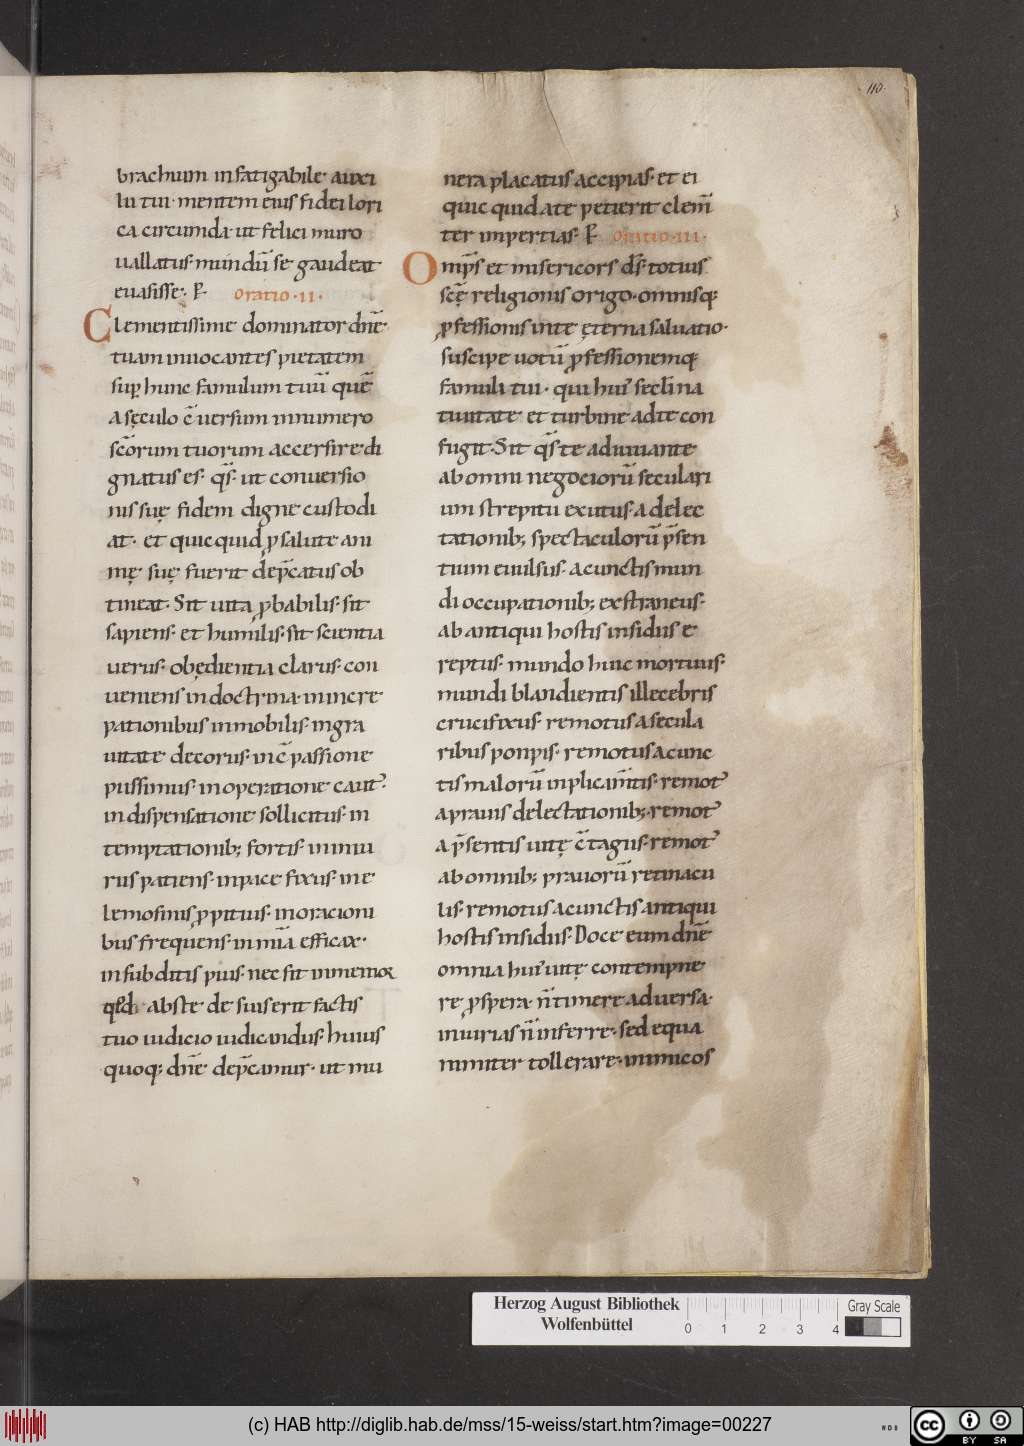 110.
brachium infatigabile auxi
lii tui· mentem eius fidei lori
ca circumda· ut felici muro
uallatus· mundū se gaudeat
euasisse·
Oratio·II·
Clementissime dominator dn̄e·
tuam inuocantes pietatem
sup̱ hunc famulum tuū quē
a sęculo c̄uersum innumero
sc̄orum tuorum accersire di
gnatus es· qs̄· ut conuersio
nis suę fidem digne custodi
at· et quicquid ꝓ salute ani
mę suę fuerit dep̄catus ob
tineat· Sit uita ꝓbabilis· sit
sapiens· et humilis· sit scientia
uerus· obędientia clarus· con
ueniens in doctrina· in incre
pationibus inmobilis· in gra
uitate decorus· in c̄passione
piissimus· in operatione caut᾿·
in dispensatione sollicitus· in
temptationib; fortis· in iniu
riis patiens· in pace fixus· in e
lemosinis ꝓpitius· in oracioni
bus frequens· in mīa efficax·
in subditis pius· nec sit inmemor
qđ abs te de suis erit factis
tuo iudicio iudicandus· huius
quoq; dn̄e dep̄camur· ut mu
nera placatus accipias· et ei
quicquid a te petierit clem̄
ter impertias·
Oratio·III·
Omp̄s et misericors ds̄· totius
sc̄ę religionis origo· omnisq;
ꝓfessionis in te ęterna saluatio·
suscipe uotū ꝓfessionemq;
famuli tui· qui hui᾿ secl̄i na
tiuitate et turbine ad te con
fugit· Sit qs̄ te adiuuante
ab omni negociorū seculari
um strepitu exutus· a delec
tationib; spectaculorū p̄sen
tium euulsus· a cunctis mun
di occupationib; exstraneus·
ab antiqui hostis insidiis e
reptus· mundo huic mortuus·
mundi blandientis illecebris
crucifixus· remotus a secula
ribus ponpis· remotus a cunc
tis malorū inplicam̄tis· remot᾿
a prauis delectationib;· remot᾿
a p̄sentis uitę c̄tagiis· remot᾿
ab omnib; prauorū retinacu
lis· remotus a cunctis antiqui
hostis insidiis· Doce eum dn̄e
omnia hui᾿ uitę contempne
re ꝓspera· n̄ timere aduersa·
iniurias n̄ inferre· sed equa
nimiter tollerare· inimicos
Herzog August Bibliothek
Wolfenbüttel
0 1 2 3 4
Gray Scale
(c) HAB http://diglib.hab.de/mss/15-weiss/start.htm?image=00227
cc BY SA